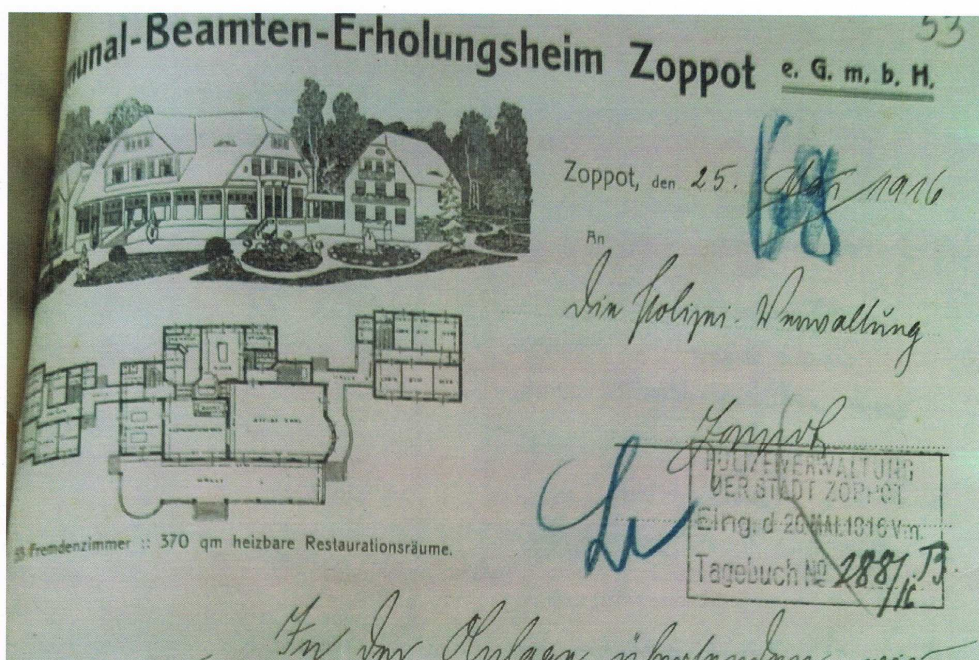 53
munal-Beamten-Erholungsheim Zoppot e. G. m. b. H.
Zoppot, den 25. Mai 1916
An
die Polizei-Verwaltung
Zoppot
POLIZEIVERWALTUNG
DER STADT ZOPPOT
Eing. d 26 MAI. 1916 Vm.
Tagebuch No 288/16 B
Fremdenzimmer :: 370 qm heizbare Restaurationsräume.
In der Anlage übersenden wir